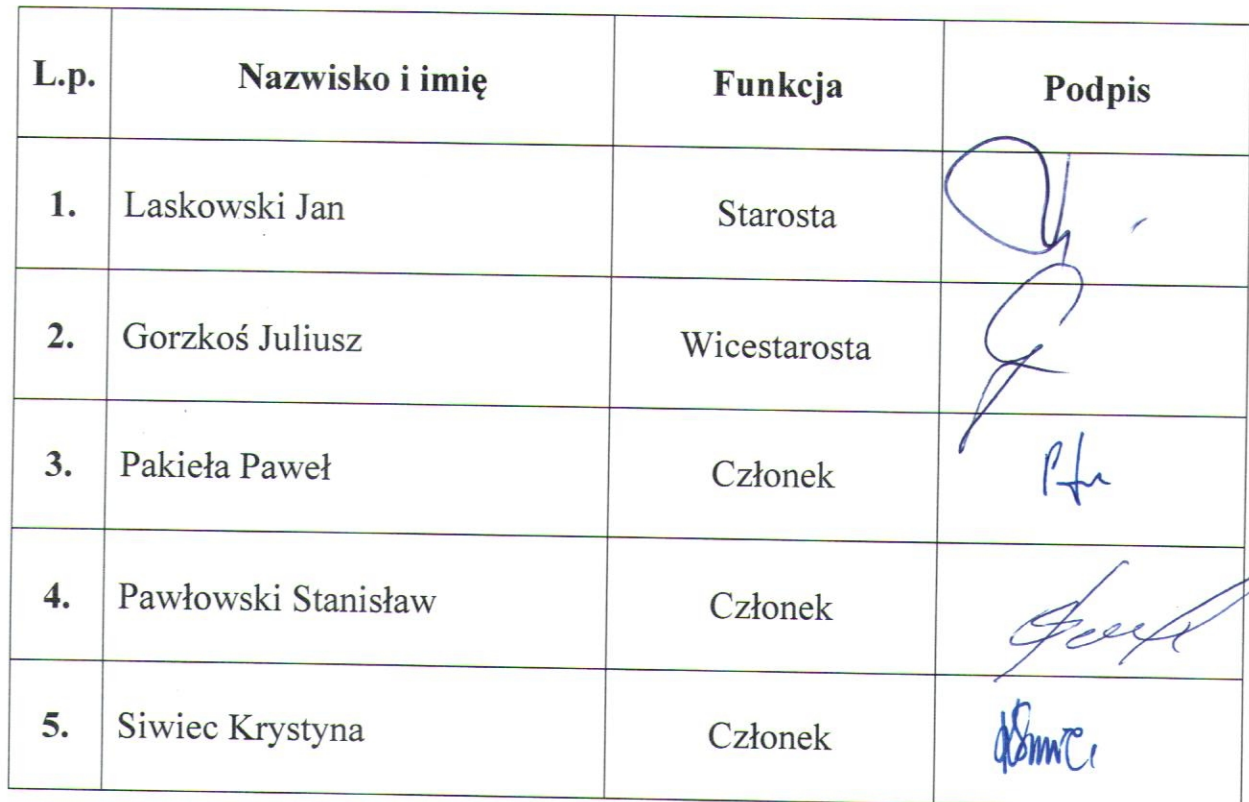 L.p. Nazwisko i imię Funkcja Podpis
1. Laskowski Jan Starosta
2. Gorzkoś Juliusz Wicestarosta
3. Pakieła Paweł Członek
4. Pawłowski Stanisław Członek
5. Siwiec Krystyna Członek